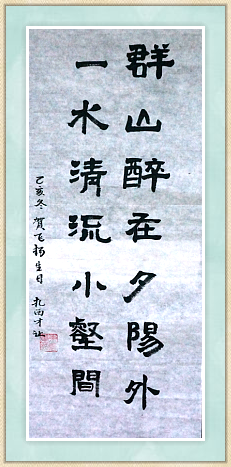 群山醉在夕陽外
一水清流小壑間
己亥冬 賀飞 生日 扎西才让